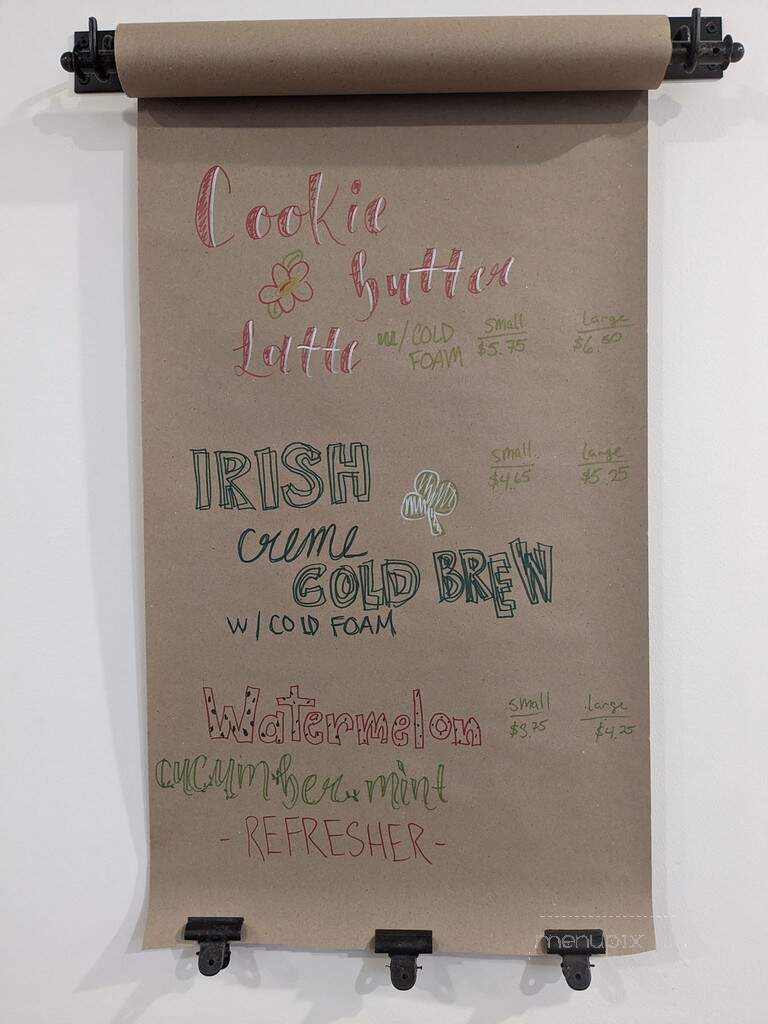 Cookie
butter
Latte w/ COLD FOAM
small $5.75
Large $6.50
IRISH
creme
COLD BREW
w/ COLD FOAM
small $4.65
Large $5.25
Watermelon
cucumber mint
- REFRESHER -
small $3.75
Large $4.25
menupix